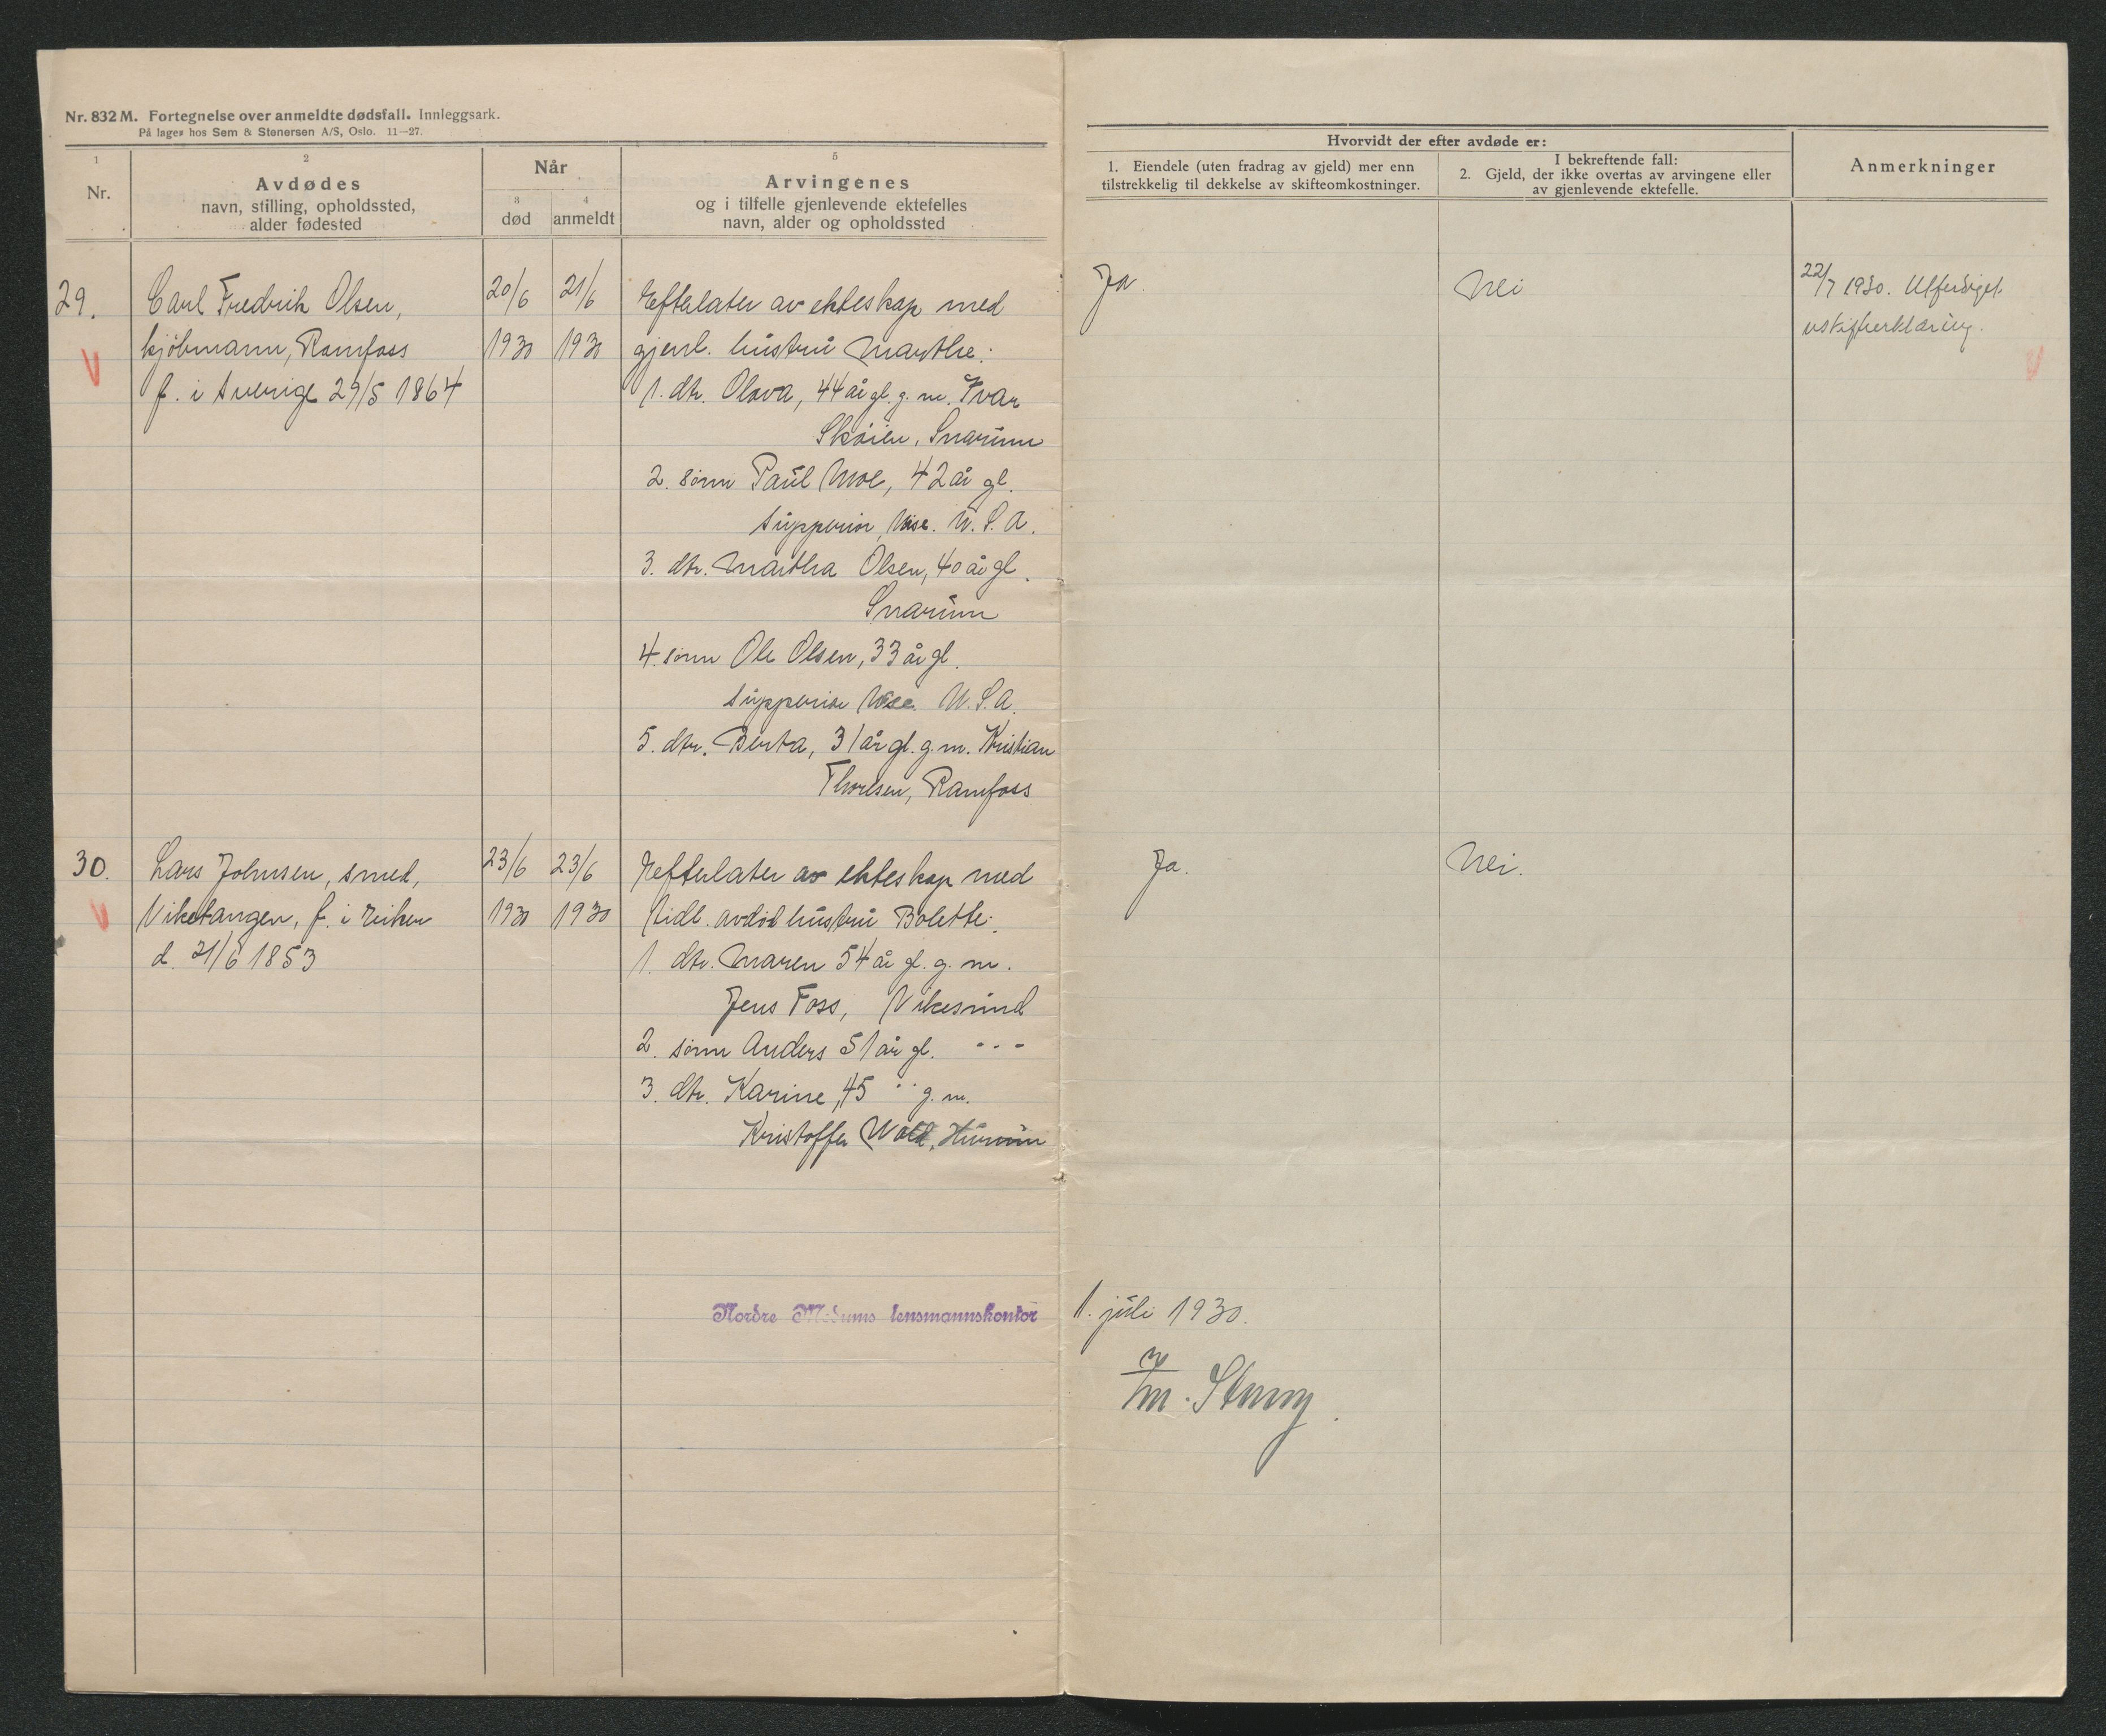 Nr. 832 M. Fortegnelse over anmeldte dødsfall. Innleggsark.
På lager hos Sem & Stenersen A/S, Oslo. 11—27.
1
Nr.
2
Avdødes
navn, stilling, opholdssted,
alder fødested
Når
3
død
4
anmeldt
5
Arvingenes
og i tilfelle gjenlevende ektefelles
navn, alder og opholdssted
Hvorvidt der efter avdøde er:
1. Eiendele (uten fradrag av gjeld) mer enn
tilstrekkelig til dekkelse av skifteomkostninger.
I bekreftende fall:
2. Gjeld, der ikke overtas av arvingene eller
av gjenlevende ektefelle.
Anmerkninger
29.
Carl Fredrik Olsen,
kjøbmann, Ramfoss
f. i Sverige 29/5 1864
20/6
1930
21/6
1930
Efterlater av ekteskap med
gjenl. hustru Marthe:
1. dtr. Olava, 44 år gl. g. m. Ivar
Skøien, Snarum
2. sønn Paul Moe, 42 år gl.
Supperior, Wise. U. S. A.
3. dtr. Martha Olsen, 40 år gl.
Snarum
4. sønn Ole Olsen, 33 år gl.
Supperior Wise. U. S. A.
5. dtr. Berta, 31 år gl. g. m. Kristian
Thorlsen, Ramfoss
Ja.
Nei
22/7 1930. Utferdiget
uskifterklæring.
30.
Lars Johnsen, smed,
Viketangen, f. i Eiker
d. 21/6 1853
23/6
1930
23/6
1930
Efterlater av ekteskap med
tidl. avdød hustru Bolette:
1. dtr. Maren 54 år gl. g. m.
Jens Foss, Vikesund
2. sønn Anders 51 år gl. - - -
3. dtr. Karine, 45 " g. m.
Kristoffer Wold, Hurum
Ja.
Nei.
Nordre Modums lensmannskontor
1. juli 1930.